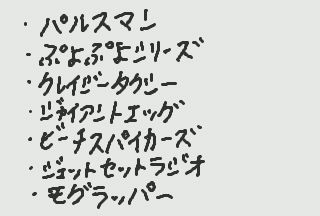 ・パルスマン
・ぷよぷよシリーズ
・クレイジータクシー
・ジャイアントエッグ
・ビーチスパイカーズ
・ジェットセットラジオ
・モグラッパー